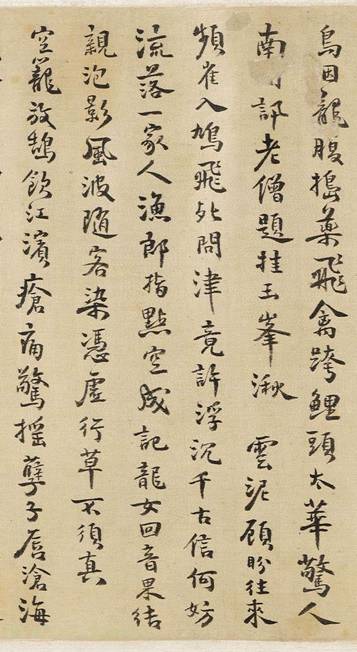 鳥因龍腹搗藥飛禽跨鯉頭太華驚人
南訊老僧題挂玉峯湫 雲泥顧盼往來
頻雀入鳩飛處問津竟許浮沉千古信何妨
流落一家人漁郎指點空成記龍女回音果結
親泡影風波隨客染憑虛行草不須真
空籠放鵠飲江濱瘡痛驚摇孽子唇滄海